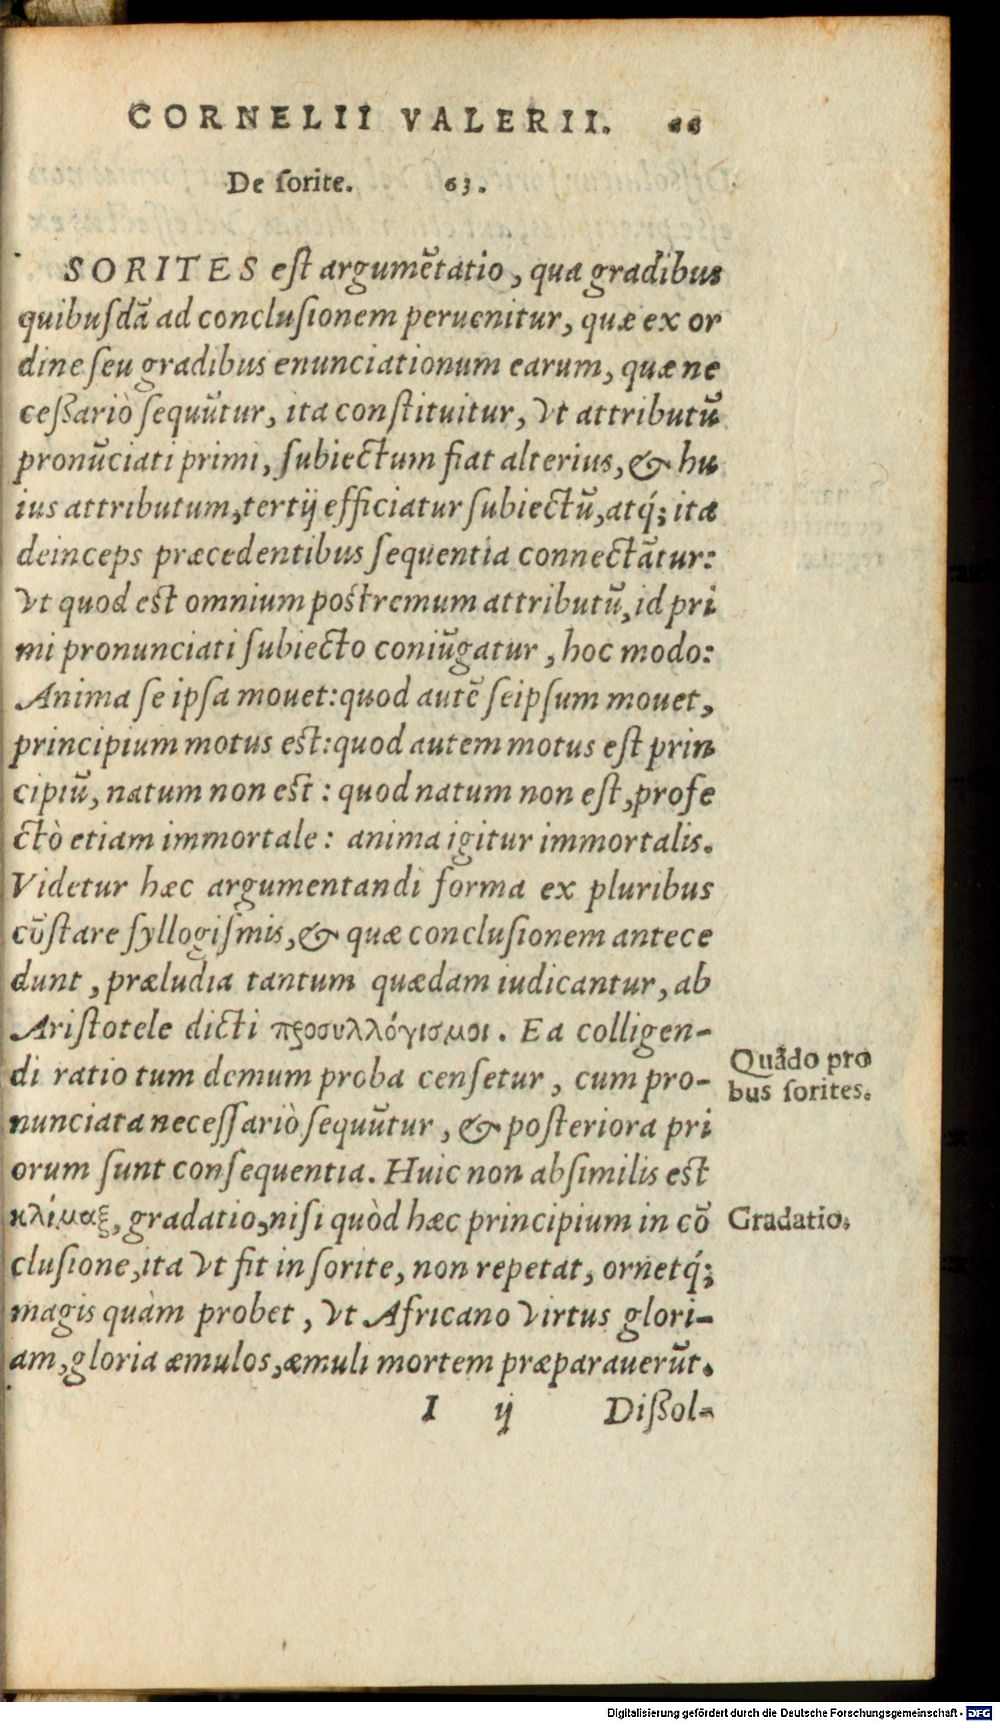 CORNELII VALERII. 66
De sorite. 63.
SORITES est argumētatio, qua gradibus
quibusdā ad conclusionem peruenitur, quæ ex or
dine seu gradibus enunciationum earum, quæ ne
ceßariò sequūtur, ita constituitur, vt attributū
pronūciati primi, subiectum fiat alterius, & hu
ius attributum, tertij efficiatur subiectū, atq́; ita
deinceps præcedentibus sequentia connectātur:
vt quod est omnium postremum attributū, id pri
mi pronunciati subiecto coniūgatur, hoc modo:
Anima se ipsa mouet: quod autē seipsum mouet,
principium motus est: quod autem motus est prin
cipiū, natum non est: quod natum non est, profe
ctò etiam immortale: anima igitur immortalis.
Videtur hæc argumentandi forma ex pluribus
cōstare syllogismis, & quæ conclusionem antece
dunt, præludia tantum quædam iudicantur, ab
Aristotele dicti προσυλλόγισμοι. Ea colligen-
di ratio tum demum proba censetur, cum pro-
nunciata necessariò sequūtur, & posteriora pri
orum sunt consequentia. Huic non absimilis est
κλίμαξ, gradatio, nisi quòd hæc principium in cō
clusione, ita vt fit in sorite, non repetat, ornetq́;
magis quàm probet, vt Africano virtus glori-
am, gloria æmulos, æmuli mortem præparauerūt.
I ij Dißol-
Quādo pro
bus sorites.
Gradatio.
Digitalisierung gefördert durch die Deutsche Forschungsgemeinschaft - DFG